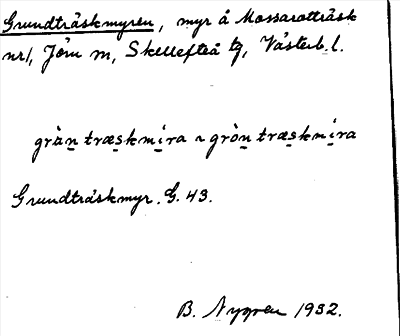 Grundträskmyren, myr å Mossarotträsk
nr 1, Jörn sn, Skellefteå tg, Västerb. l.
gràn træskmira ~ gròn træskmira
Grundträskmyr. G. 43.
B. Nygren 1932.